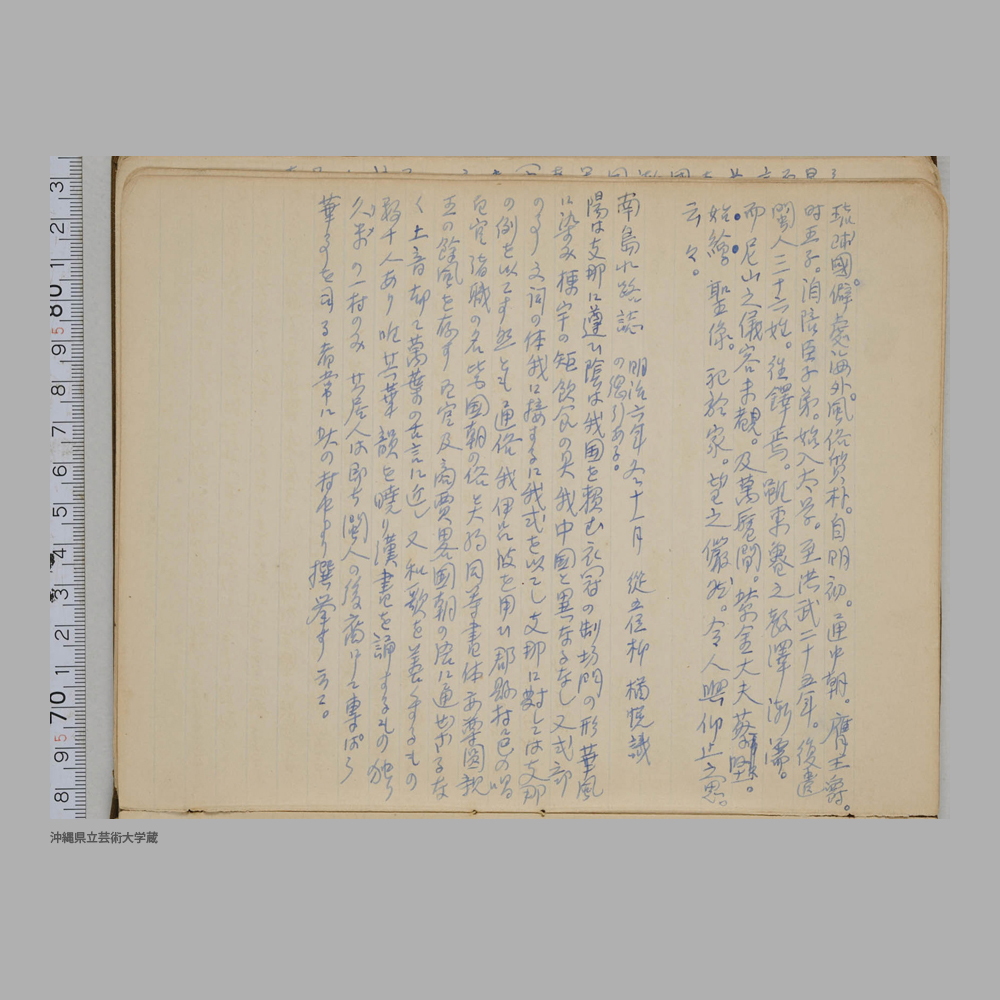 琉球國。僻處海外。風俗質朴。自明初。通中朝。膺王爵。
時王子。洎陪臣子弟。始入太学。至洪武二十五年。復遣
閩人三十六姓。往鐸焉。雖東魯之教澤漸濡。
而尼山之儀容未覩。及萬歴間。紫金大夫蔡堅。
始繪聖像。祀於家。望之儼然。令人興仰止之思。
云々。
南島水路誌 明治六年冬十一月 從五位柳楢悦識
の緒引ある。
陽は支那に遵ひ陰は我国を頼む衣冠の制坊門の形華風
に染み棟宇の矩飲食の具我中国と異なるなし又式部
のより文詞の体我に接するに我式を以てし支那に對しては支那
の例を以てす然とも通俗我伊呂波を用ひ郡縣村邑の唱
百官諸職の名皆国朝の俗と大同
王の餘風を存す百官及商賈畧国朝の語に通せさるな
く土音却て萬葉の古言に近し又和歌を善くするもの
数十人あり唯其華韻を曉り漢書を誦するもの独り
久米の一村のみ其居人は即ち閩人の後裔にて専ぱら
華事を司る者常に此の村中より撰挙す云々。
沖縄県立芸術大学蔵